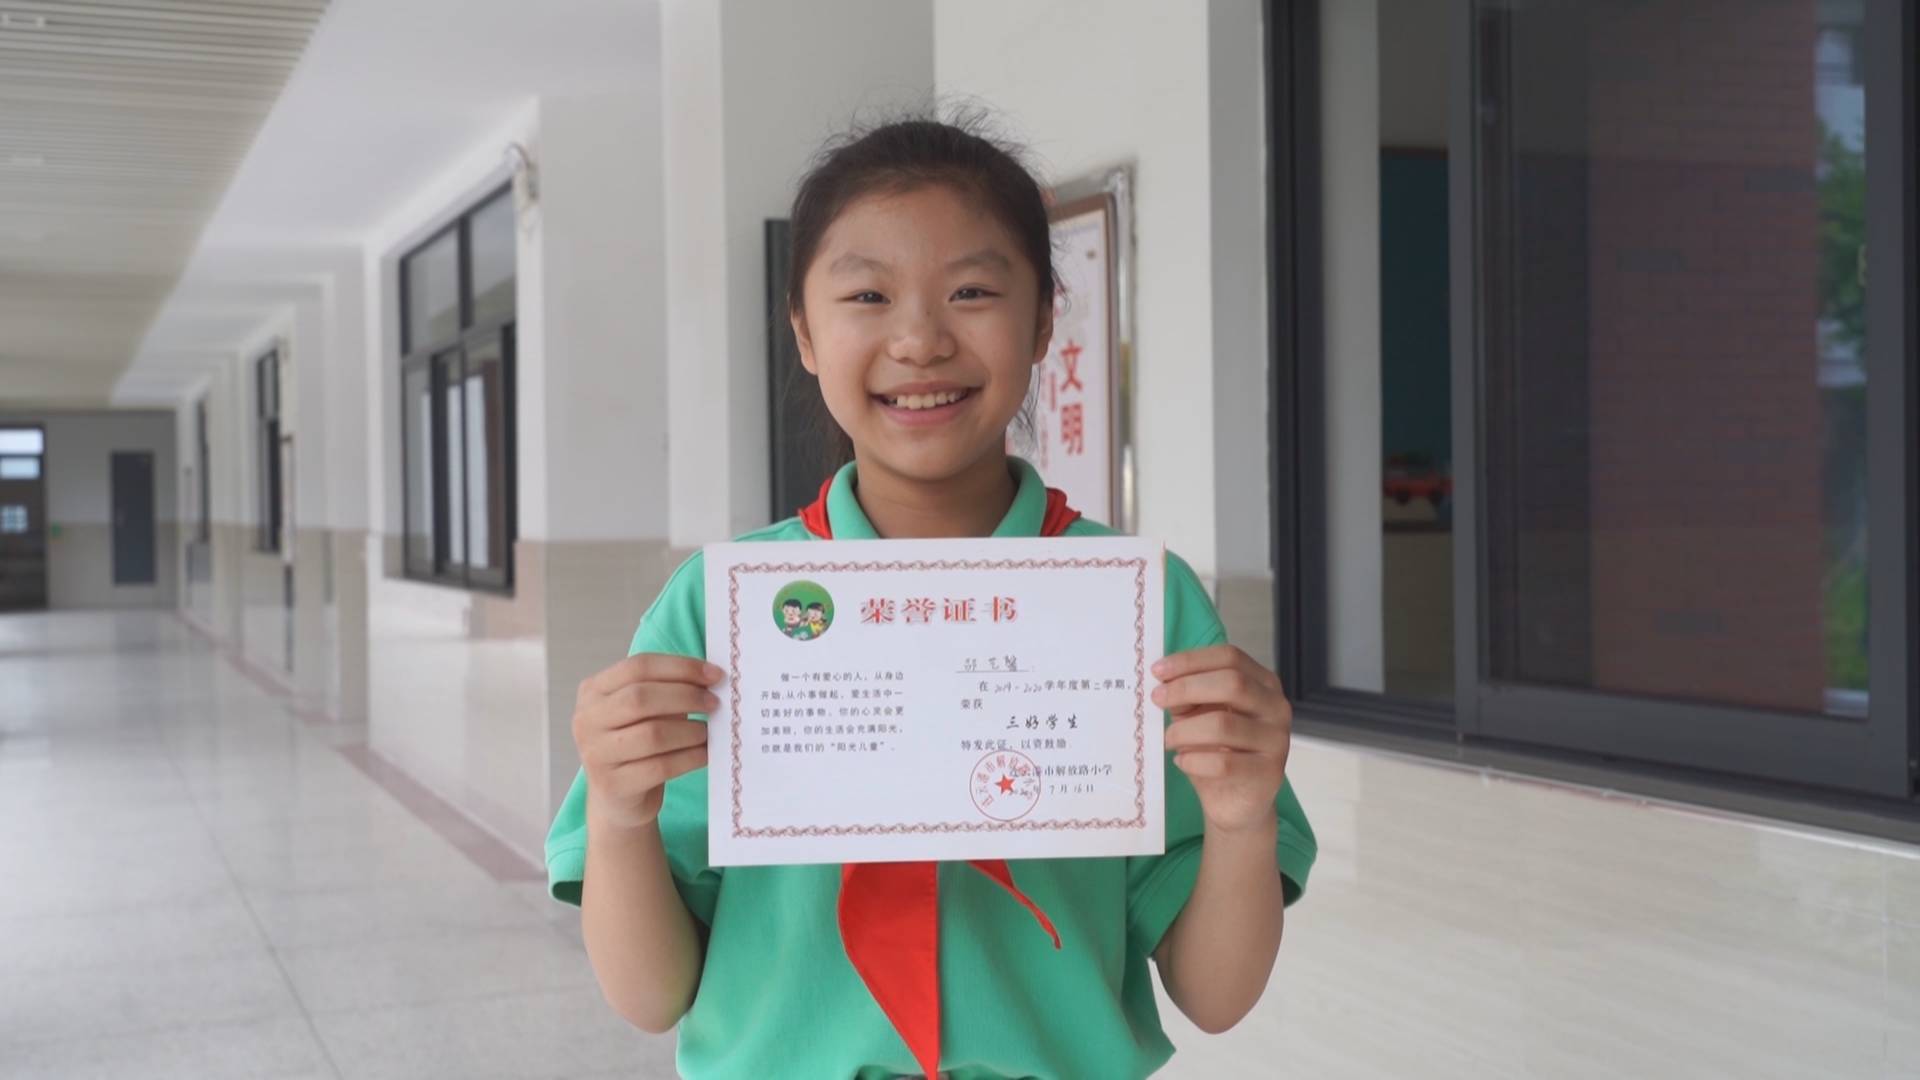 文明
荣誉证书
做一个有爱心的人，从身边
开始,从小事做起，爱生活中一
切美好的事物，你的心灵会更
加美丽，你的生活会充满阳光，
你就是我们的“阳光儿童”。
邵艺馨
在2019-2020学年度第二学期，
荣获
三好学生
特发此证，以资鼓励.
连云港市解放路小学
2020年7月16日